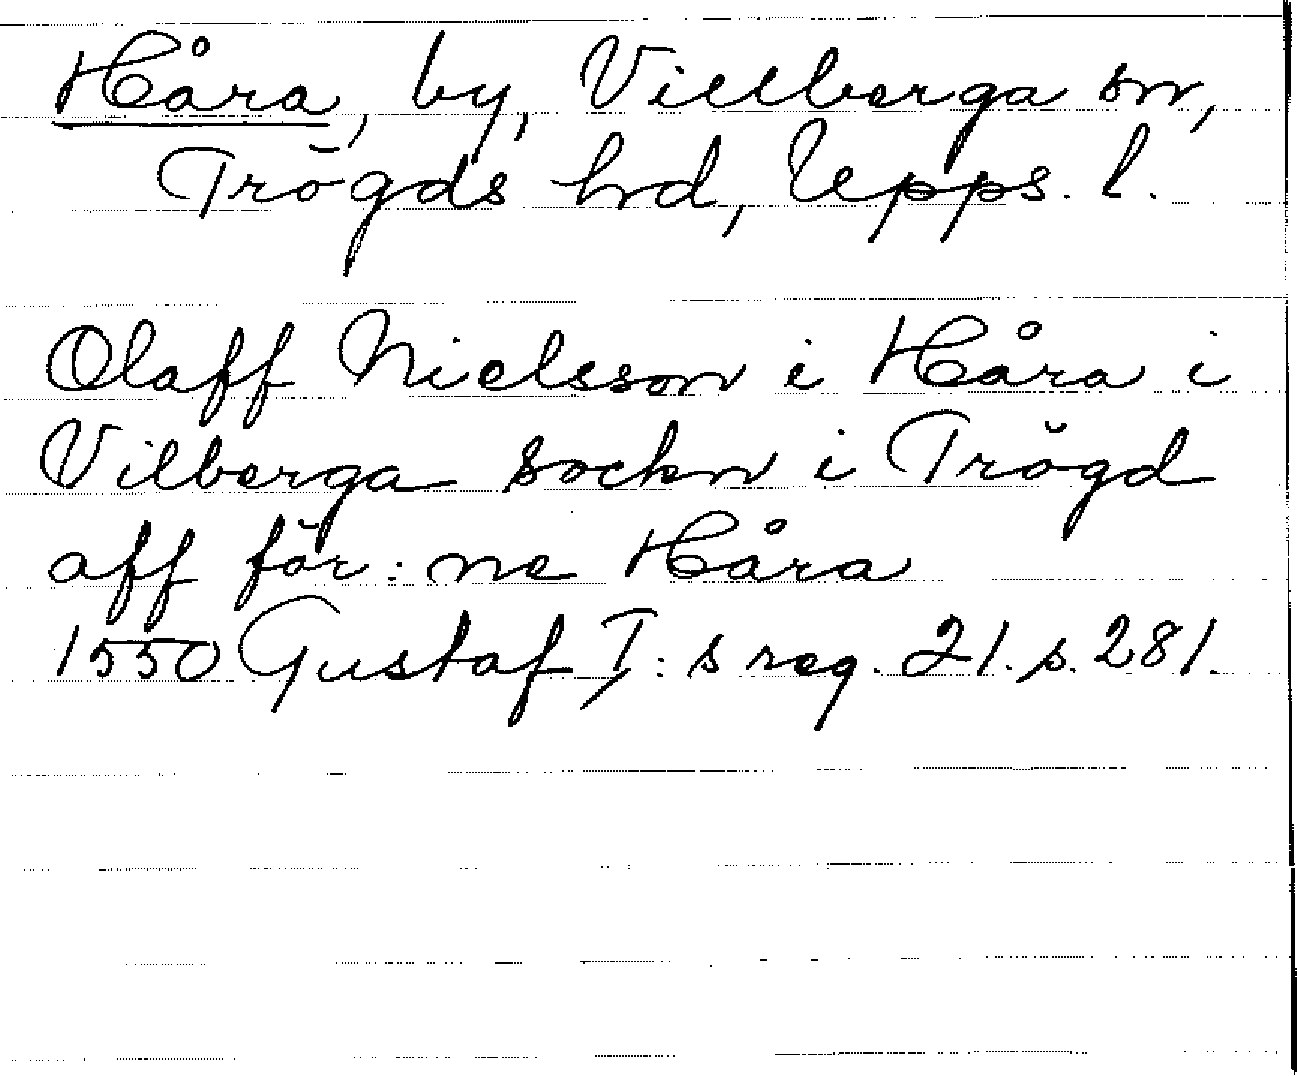 Håra, by, Villberga sn,
Trögds hd, Upps. l.
Olaff Nielsson i Håra i
Vilberga sockn i Trögd
aff för: ne Håra
1550 Gustaf I: s reg. 21. s. 281.